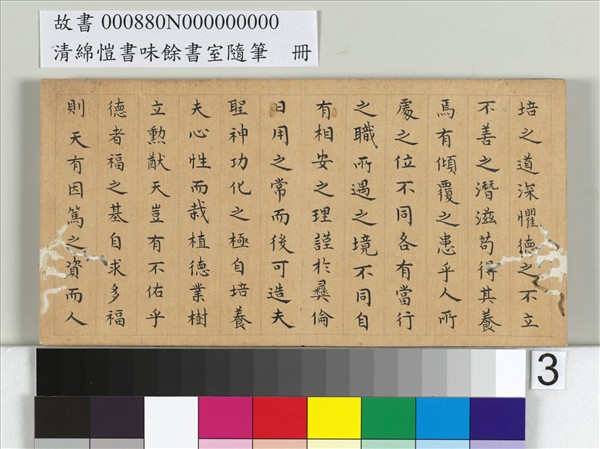 故書 000880N000000000
清綿愷書味餘書室隨筆 冊
培之道深懼德之不立
不善之潛滋苟得其養
焉有傾覆之患乎人所
處之位不同各有當行
之職所遇之境不同自
有相安之理謹於彞倫
日用之常而後可造夫
聖神功化之極自培養
夫心性而哉植德業樹
立勲猷天豈有不佑乎
德者福之基自求多福
則天有因篤之資而人
3